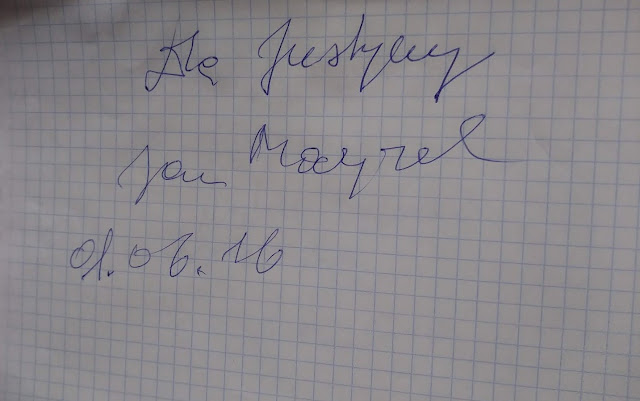 Dla Justyny
Jan Mayzel
01.06.16